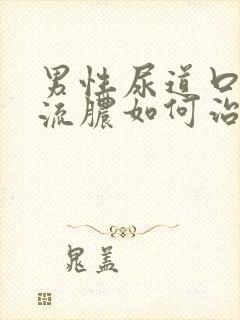 男性尿道口
流脓如何治
晁盖